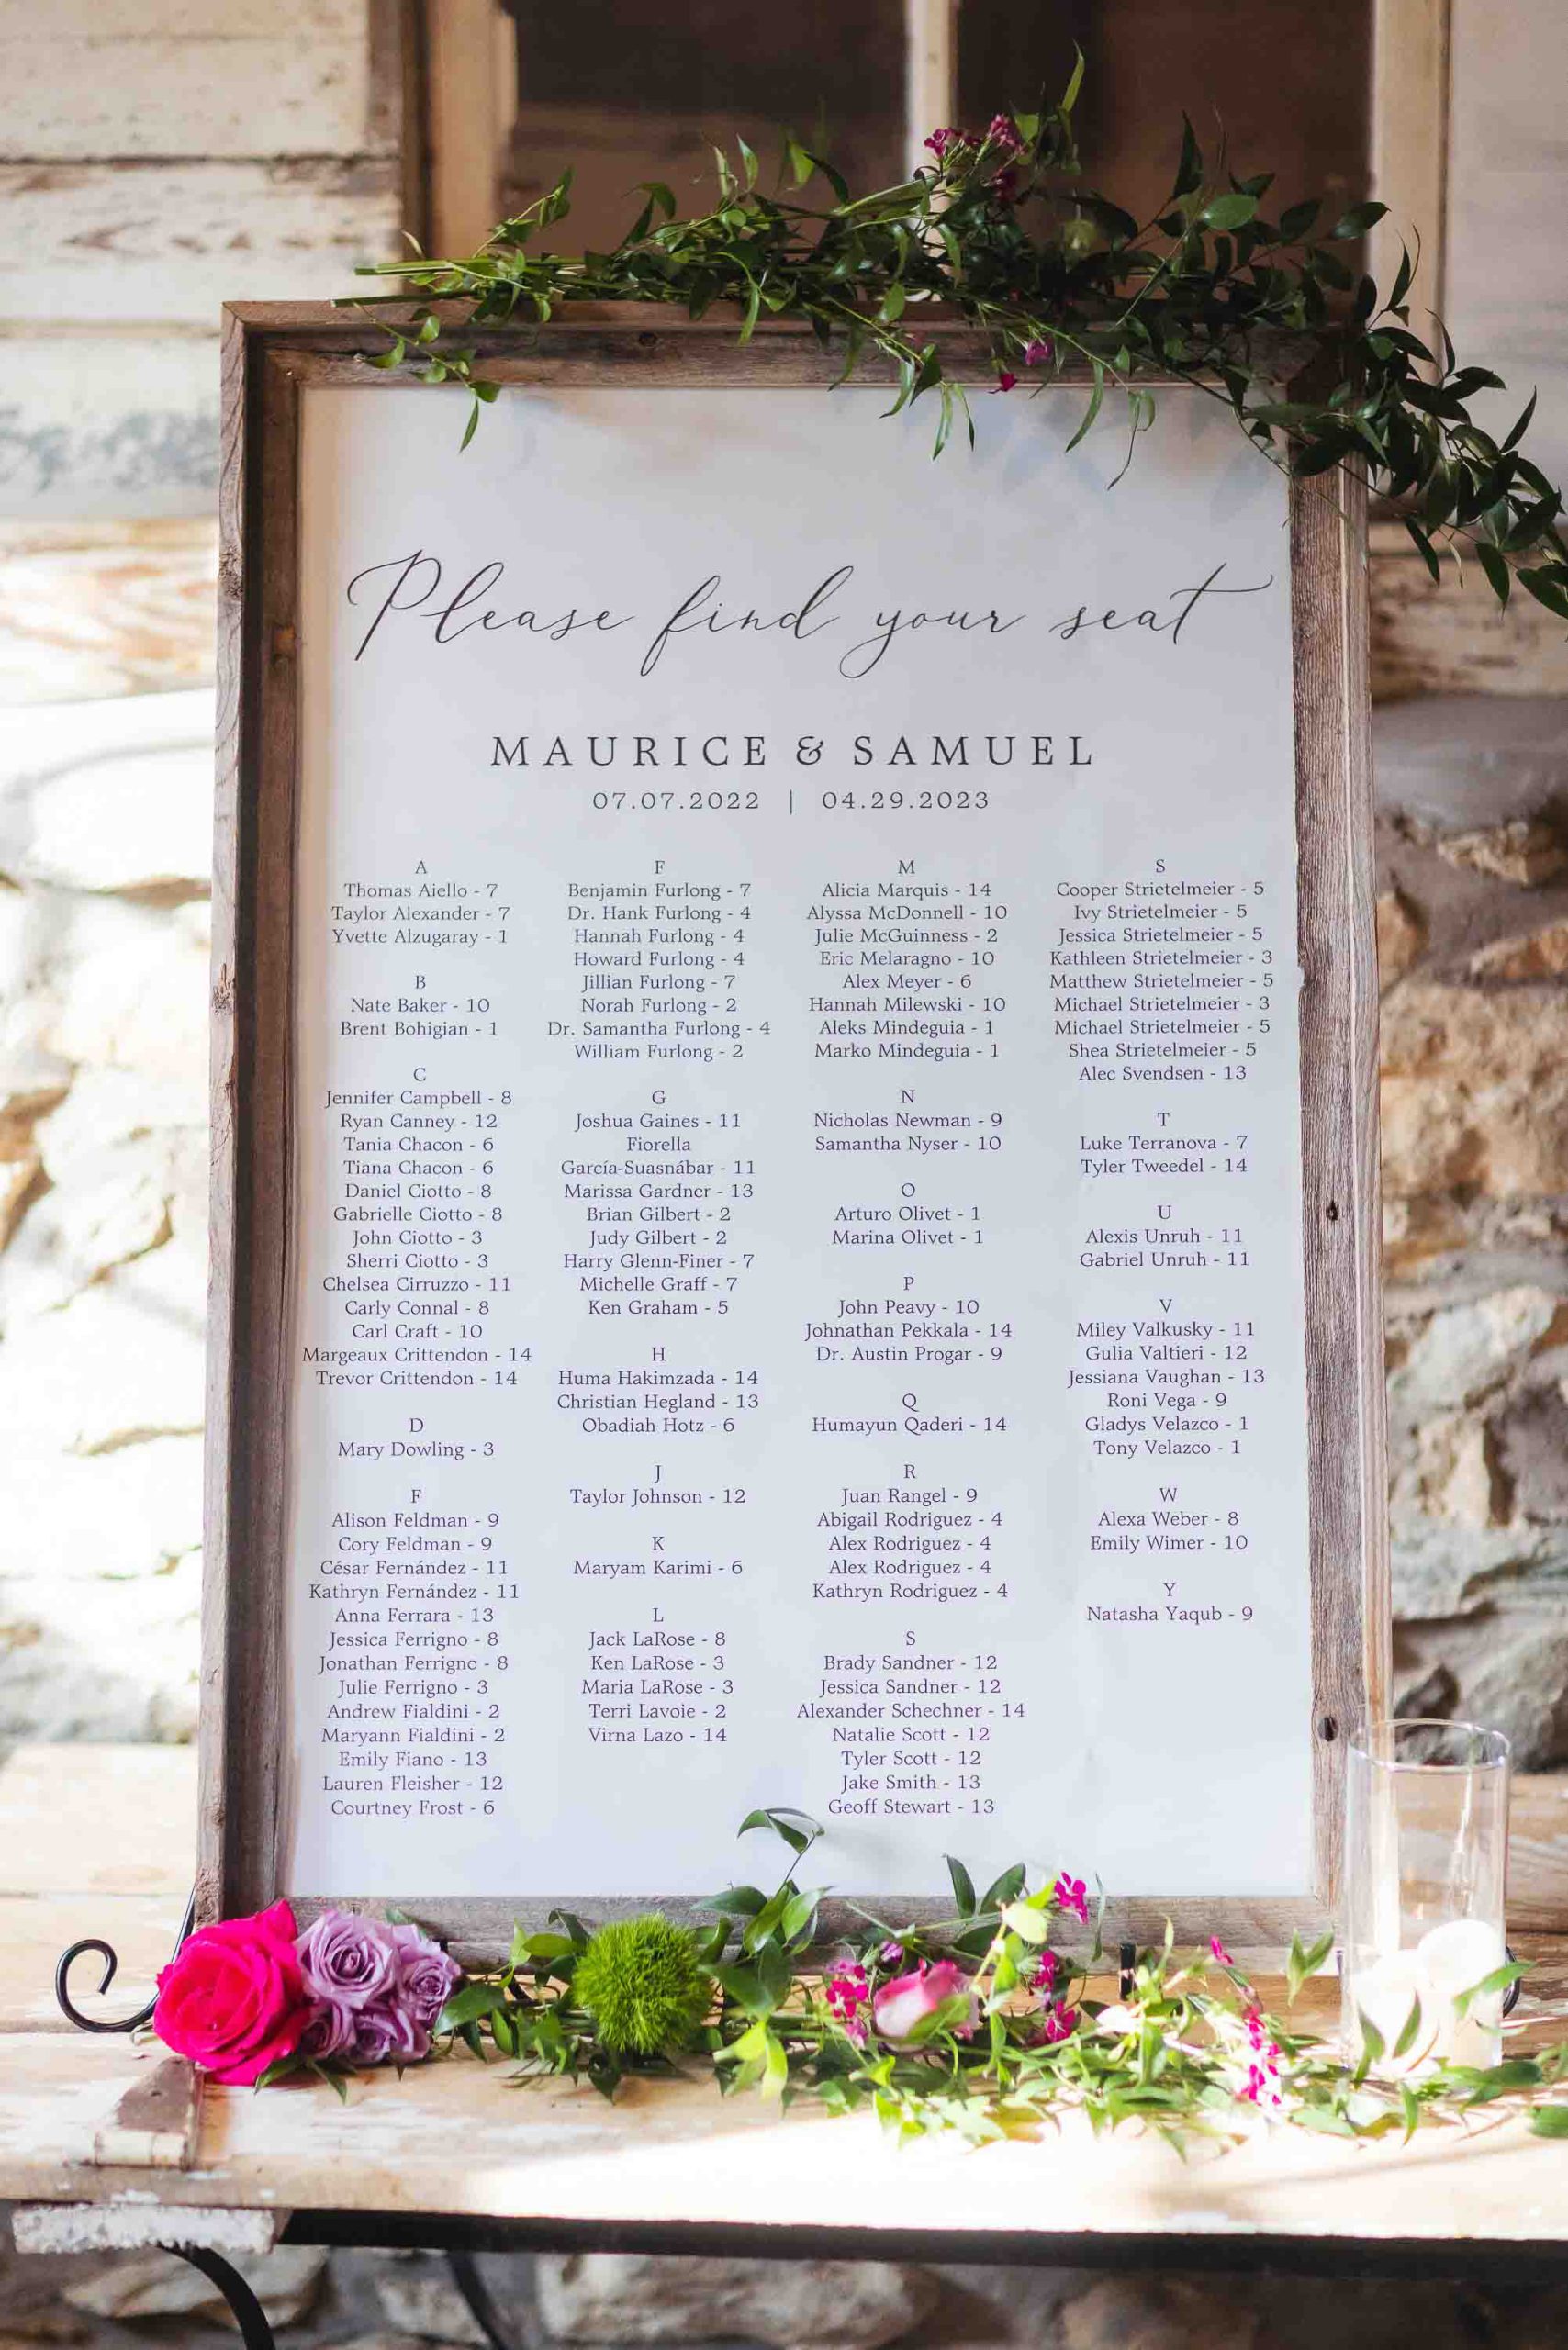 Please find your seat
MAURICE & SAMUEL
07.07.2022 | 04.29.2023
A
Thomas Aiello - 7
Taylor Alexander - 7
Yvette Alzugaray - 1
B
Nate Baker - 10
Brent Bohigian - 1
C
Jennifer Campbell - 8
Ryan Canney - 12
Tania Chacon - 6
Tiana Chacon - 6
Daniel Ciotto - 8
Gabrielle Ciotto - 8
John Ciotto - 3
Sherri Ciotto - 3
Chelsea Cirruzzo - 11
Carly Connal - 8
Carl Craft - 10
Margeaux Crittendon - 14
Trevor Crittendon - 14
D
Mary Dowling - 3
F
Alison Feldman - 9
Cory Feldman - 9
César Fernández - 11
Kathryn Fernández - 11
Anna Ferrara - 13
Jessica Ferrigno - 8
Jonathan Ferrigno - 8
Julie Ferrigno - 3
Andrew Fialdini - 2
Maryann Fialdini - 2
Emily Fiano - 13
Lauren Fleisher - 12
Courtney Frost - 6
F
Benjamin Furlong - 7
Dr. Hank Furlong - 4
Hannah Furlong - 4
Howard Furlong - 4
Jillian Furlong - 7
Norah Furlong - 2
Dr. Samantha Furlong - 4
William Furlong - 2
G
Joshua Gaines - 11
Fiorella
García-Suasnábar - 11
Marissa Gardner - 13
Brian Gilbert - 2
Judy Gilbert - 2
Harry Glenn-Finer - 7
Michelle Graff - 7
Ken Graham - 5
H
Huma Hakimzada - 14
Christian Hegland - 13
Obadiah Hotz - 6
J
Taylor Johnson - 12
K
Maryam Karimi - 6
L
Jack LaRose - 8
Ken LaRose - 3
Maria LaRose - 3
Terri Lavoie - 2
Virna Lazo - 14
M
Alicia Marquis - 14
Alyssa McDonnell - 10
Julie McGuinness - 2
Eric Melaragno - 10
Alex Meyer - 6
Hannah Milewski - 10
Aleks Mindeguia - 1
Marko Mindeguia - 1
N
Nicholas Newman - 9
Samantha Nyser - 10
O
Arturo Olivet - 1
Marina Olivet - 1
P
John Peavy - 10
Johnathan Pekkala - 14
Dr. Austin Progar - 9
Q
Humayun Qaderi - 14
R
Juan Rangel - 9
Abigail Rodriguez - 4
Alex Rodriguez - 4
Alex Rodriguez - 4
Kathryn Rodriguez - 4
S
Brady Sandner - 12
Jessica Sandner - 12
Alexander Schechner - 14
Natalie Scott - 12
Tyler Scott - 12
Jake Smith - 13
Geoff Stewart - 13
S
Cooper Strietelmeier - 5
Ivy Strietelmeier - 5
Jessica Strietelmeier - 5
Kathleen Strietelmeier - 3
Matthew Strietelmeier - 5
Michael Strietelmeier - 3
Michael Strietelmeier - 5
Shea Strietelmeier - 5
Alec Svendsen - 13
T
Luke Terranova - 7
Tyler Tweedel - 14
U
Alexis Unruh - 11
Gabriel Unruh - 11
V
Miley Valkusky - 11
Gulia Valtieri - 12
Jessiana Vaughan - 13
Roni Vega - 9
Gladys Velazco - 1
Tony Velazco - 1
W
Alexa Weber - 8
Emily Wimer - 10
Y
Natasha Yaqub - 9